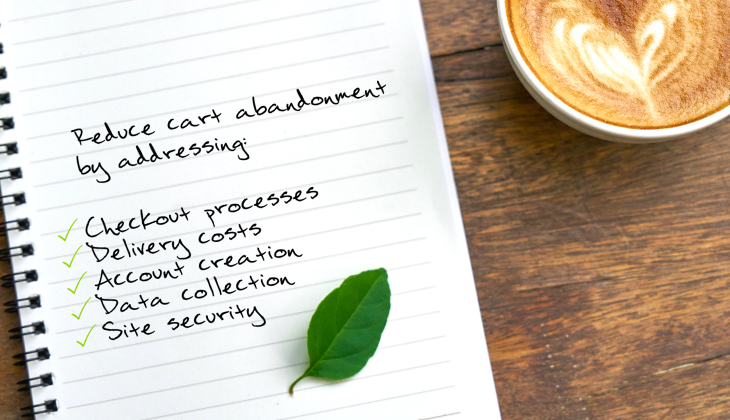 Reduce cart abandonment
by addressing:
Checkout processes
Delivery costs
Account creation
Data collection
Site security